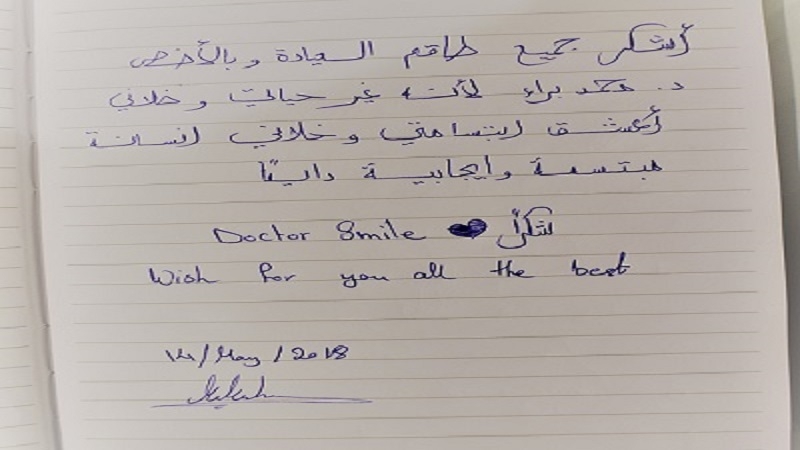 أشكر جميع طاقم العيادة وبالأخص
د. محمد براء لأنه غير حياتي وخلاني
أعشق ابتسامتي وخلاني انسانة
مبتسمة وايجابية دايمًا
شكرًا Doctor Smile
Wish for you all the best
14/May/2018